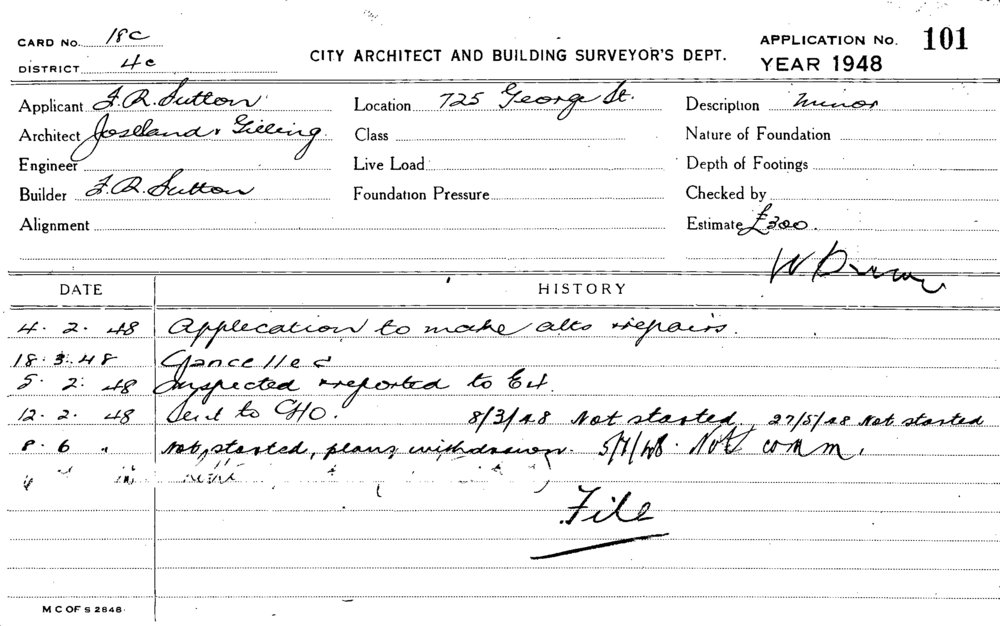 CARD No. 18C
DISTRICT 4c
CITY ARCHITECT AND BUILDING SURVEYOR'S DEPT.
APPLICATION No. 101
YEAR 1948
Applicant F.R. Sutton
Location 725 George St.
Description minor
Architect Joseland & Gilling
Class
Nature of Foundation
Engineer
Live Load
Depth of Footings
Builder F.R. Sutton
Foundation Pressure
Checked by
Alignment
Estimate £300.
DATE HISTORY
4. 2. 48 Application to make alts & repairs.
18. 3. 48 Cancelled
5. 2. 48 Inspected & reported to
12. 2. 48 Sent to CHO. 8/3/48 Not started, 27/5/48 Not started
8. 6 " Not started, plans withdrawn. 5/7/48. Not comm.
File
M C OF S 2848